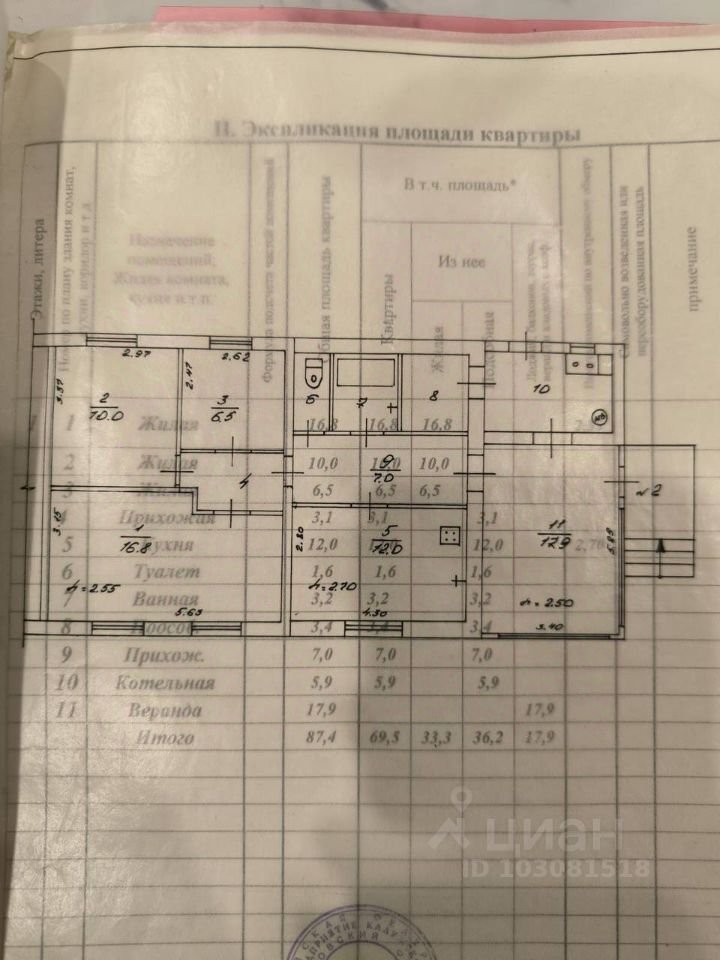 II. Экспликация площади квартиры
Этажи, литера
Назначение
помещений;
Жилая комната,
кухня и т.п.
Общая площадь квартиры
В т.ч. площадь*
Квартиры
Из нее
Жилая
Подсобная
примечание
1 Жилая 16,8 16,8 16,8
2 Жилая 10,0 10,0 10,0
3 6,5 6,5 6,5
4 Прихожая 3,1 3,1 3,1
5 Кухня 12,0 12,0 2,70
6 Туалет 1,6 1,6 1,6
7 Ванная 3,2 3,2 3,2
8 3,4 3,4 3,4
9 Прихож. 7,0 7,0 7,0
10 Котельная 5,9 5,9 5,9
11 Веранда 17,9 17,9
Итого 87,4 69,5 33,3 36,2 17,9
2.97
2.62
3.37
2.47
2
10.0
3
6.5
6
7
8
10
4
9
7.0
3.15
1
16.8
2.80
5
12.0
11
17.9
5.29
№2
h=2.55
5.65
h=2.70
4.30
h=2.50
3.40
циан
ID 103081518